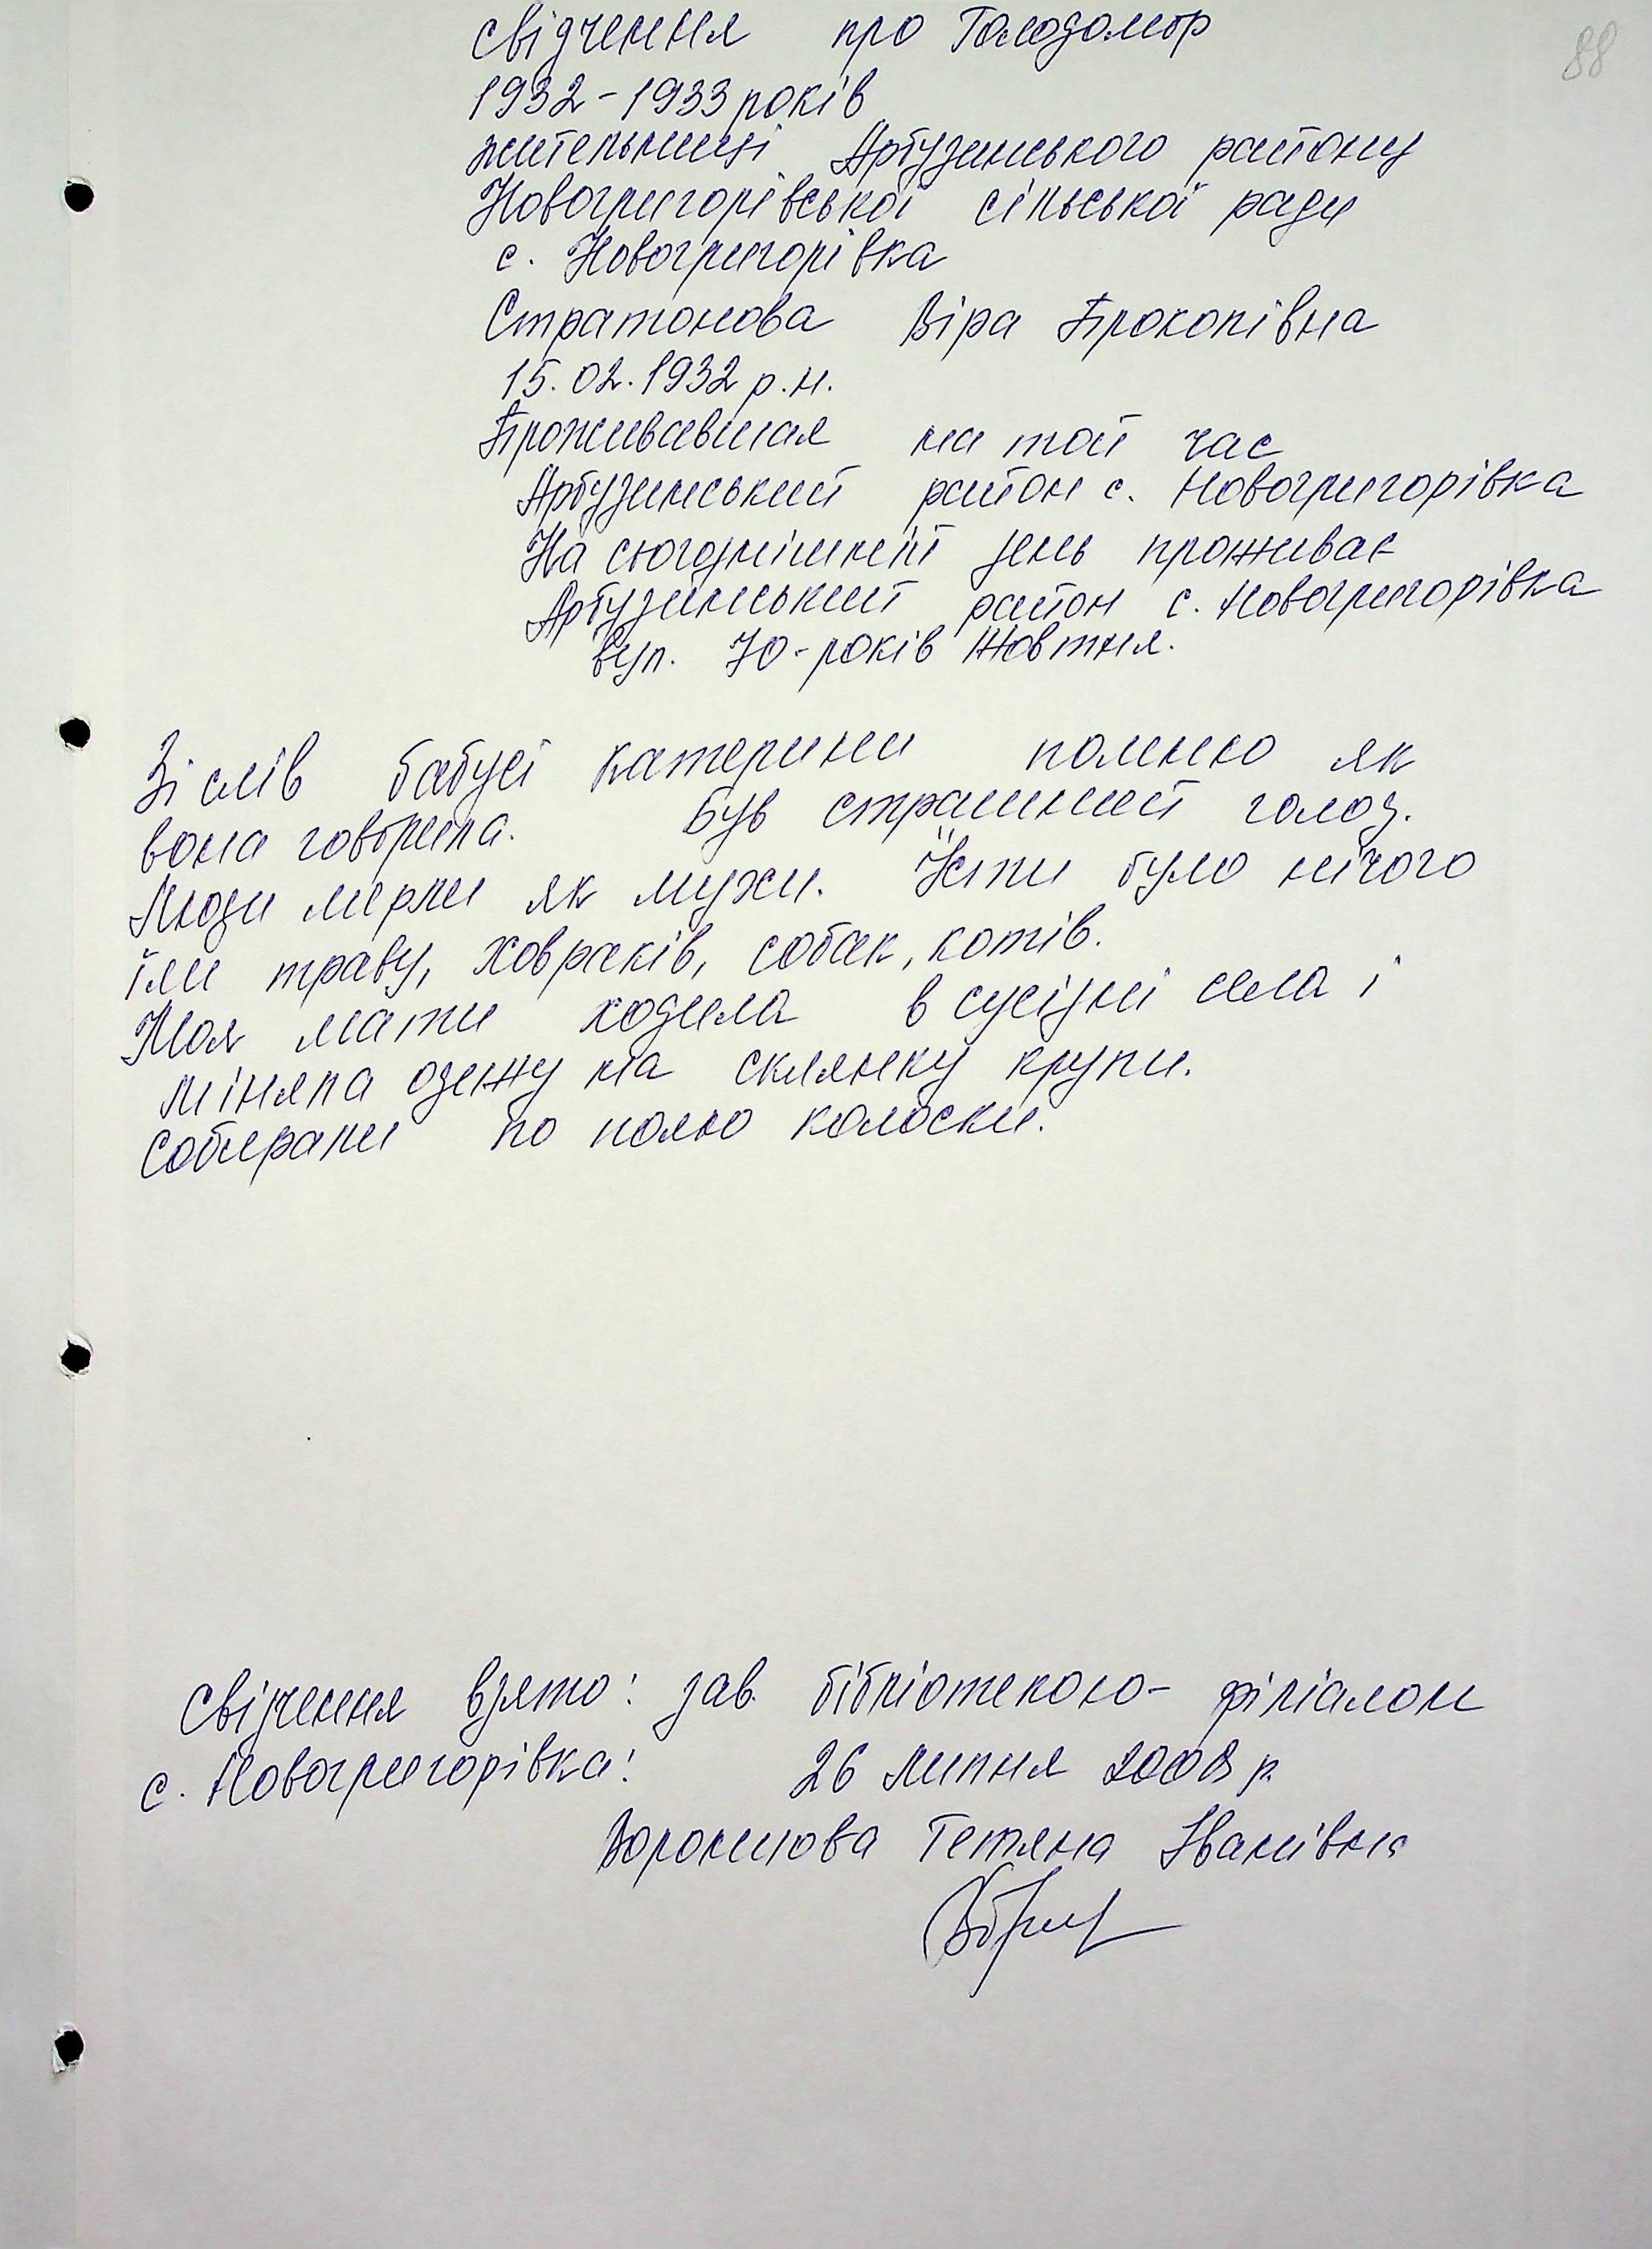 88
свідчення про Голодомор
1932-1933 років
жительниці Арбузинського району
Новогригорівської сільської ради
с. Новогригорівка
Стратонова Віра Прокопівна
15.02.1932 р.н.
Проживавшая на той час
Арбузинський район с. Новогригорівка
На сьогоднішній день проживає
Арбузинський район с. Новогригорівка
вул. 70-років Жовтня.
Зі слів бабусі Катерини помню як
вона говорила. Був страшний голод.
Люди мерли як мухи. Їсти було нічого
їли траву, ховраків, собак, котів.
Моя мати ходила в сусідні села і
міняла одежу на склянку крупи.
собирали по полю колоски.
свідчення взято: зав. бібліотекою-філіалом
с. Новогригорівка: 26 липня 2008 р.
Воронцова Тетяна Іванівна